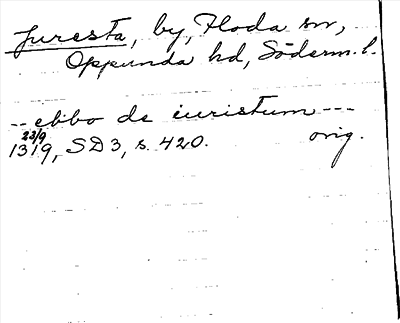 Juresta, by, Floda sn,
Oppunda hd, Söderm. l.
-- ebbo de iuristum ---
23/9
1319, SD3, s. 420. orig.